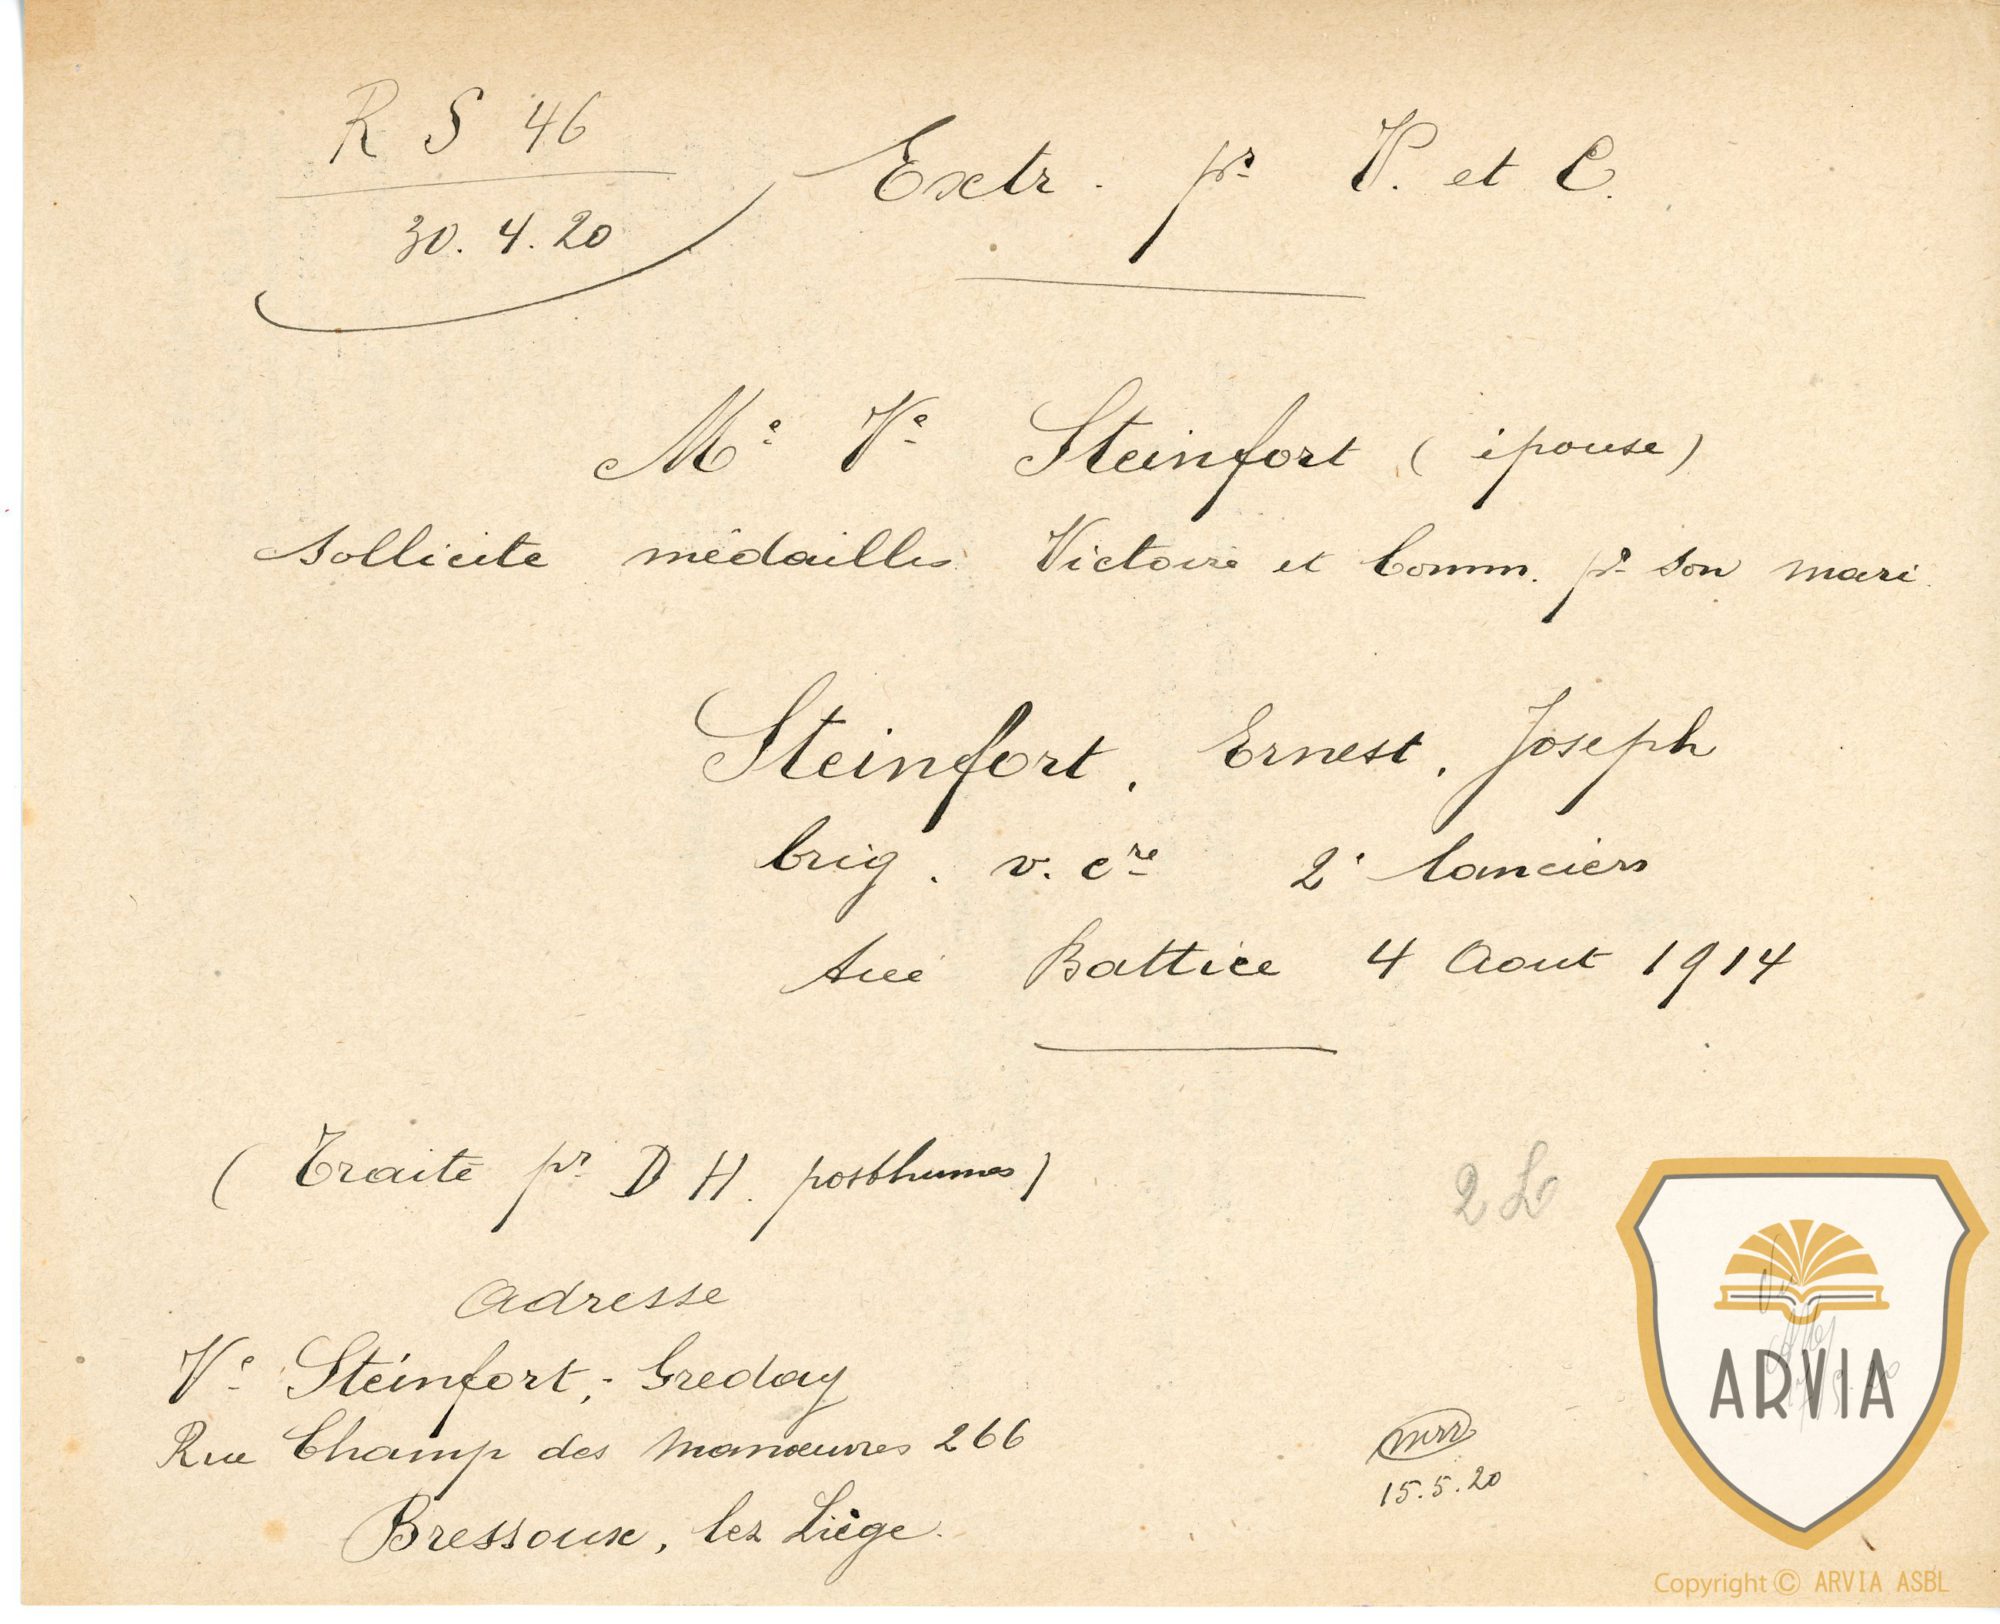 R S 46
30. 4. 20
Extr. pr V. et C.
Me Ve Steinfort (épouse)
sollicite médailles Victoire et Comm. pr son mari
Steinfort, Ernest, Joseph
brig. v. cre 2e lanciers
tué Battice 4 Aout 1914
(Traité pr D H. posthumes)
2 L
Adresse
Ve Steinfort, - Greday
Rue Champ des Manœuvres 266
Bressoux, lez Liège.
15.5.20
ARVIA
Copyright © ARVIA ASBL